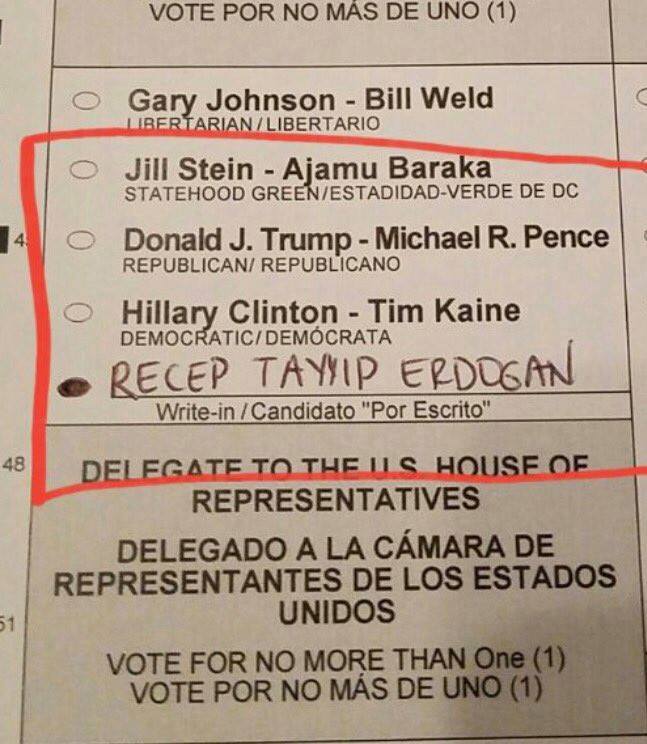 VOTE POR NO MÁS DE UNO (1)
Gary Johnson - Bill Weld
LIBERTARIAN/LIBERTARIO
Jill Stein - Ajamu Baraka
STATEHOOD GREEN/ESTADIDAD-VERDE DE DC
Donald J. Trump - Michael R. Pence
REPUBLICAN/ REPUBLICANO
Hillary Clinton - Tim Kaine
DEMOCRATIC/DEMÓCRATA
RECEP TAYYIP ERDOGAN
Write-in / Candidato "Por Escrito"
48
DELEGATE TO THE U.S. HOUSE OF
REPRESENTATIVES
DELEGADO A LA CÁMARA DE
REPRESENTANTES DE LOS ESTADOS
UNIDOS
51
VOTE FOR NO MORE THAN One (1)
VOTE POR NO MÁS DE UNO (1)